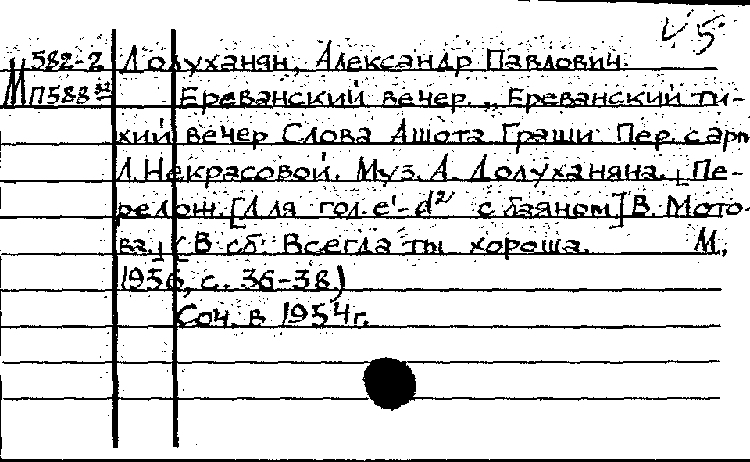 √5
582-2 Долуханян, Александр Павлович.
М П588 Ереванский вечер. „Ереванский ти-
хий вечер Слова Ашота Граши Пер. с арм
Л. Некрасовой. Муз. А. Долуханяна. [Пе-
релож. [Для гол. e¹-d² с баяном] В. Мото-
ва.] (В сб: Всегда ты хороша. М.,
1956, с. 36-38)
Соч. в 1954г.